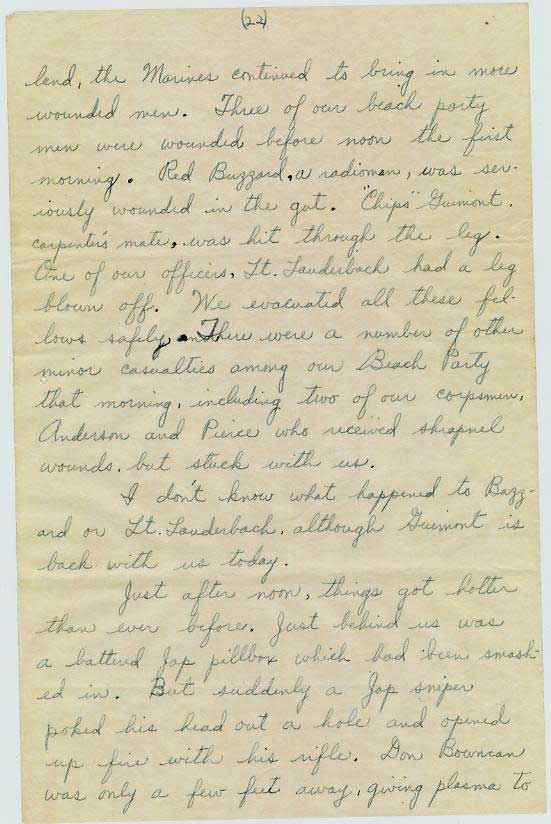 (22)
land, the Marines continued to bring in more
wounded men. Three of our beach party
men were wounded before noon the first
morning. Red Buzzard, a radioman, was ser-
iously wounded in the gut. "Chips" Guimont,
carpenter's mate, was hit through the leg.
One of our officers, Lt. Lauderbach had a leg
blown off. We evacuated all these fel-
lows safely, and There were a number of other
minor casualties among our Beach Party
that morning, including two of our corpsmen,
Anderson and Pierce who received shrapnel
wounds, but stuck with us.
I don't know what happened to Bazz-
ard or Lt. Lauderbach, although Guimont is
back with us today.
Just after noon, things got hotter
than ever before. Just behind us was
a battered Jap pillbox which had been smash-
ed in. But suddenly a Jap sniper
poked his head out a hole and opened
up fire with his rifle. Don Bowman
was only a few feet away, giving plasma to